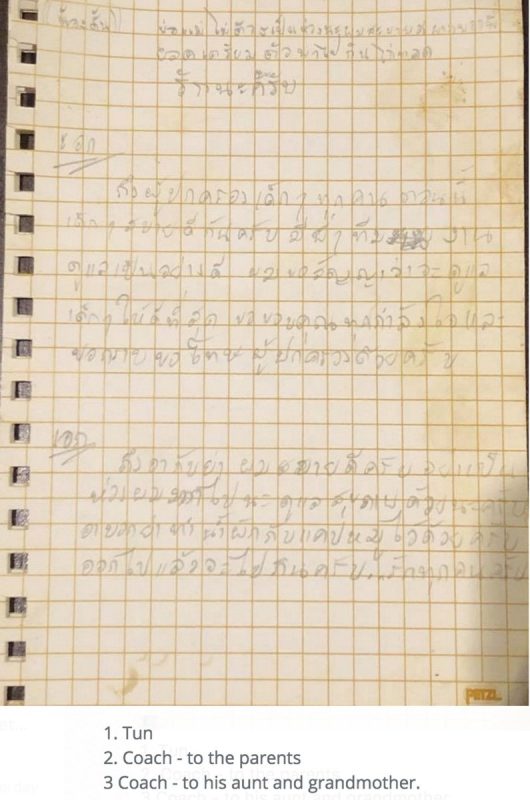 พ่อแม่ ไม่ต้องเป็นห่วงนะผมสบายดี
ยอดเตรียมตัวพาไปกินไก่ทอด
รักนะครับ
เอก
ถึงผู้ปกครองเด็กๆ ทุกคน ตอนนี้
เด็กๆ สบายดีกันครับ มีพี่ๆ ทีม งาน
ดูแลเป็นอย่างดี ผมขอสัญญาว่าจะดูแล
เด็กๆ ให้ดีที่สุด ขอขอบคุณทุกกำลังใจและ
ขอกราบขอโทษ ผู้ปกครองด้วยครับ
เอก
ถึงตากับย่า ผมสบายดีครับ อย่าเป็น
ห่วงผมมากไปนะ ดูแลสุขภาพด้วยนะครับ
ตาบอกย่าทำน้ำผักกับแคปหมูไว้ด้วยครับ
ออกไปแล้วจะไปกินครับ...รักทุกคนครับ
PETZL
1. Tun
2. Coach - to the parents
3 Coach - to his aunt and grandmother.